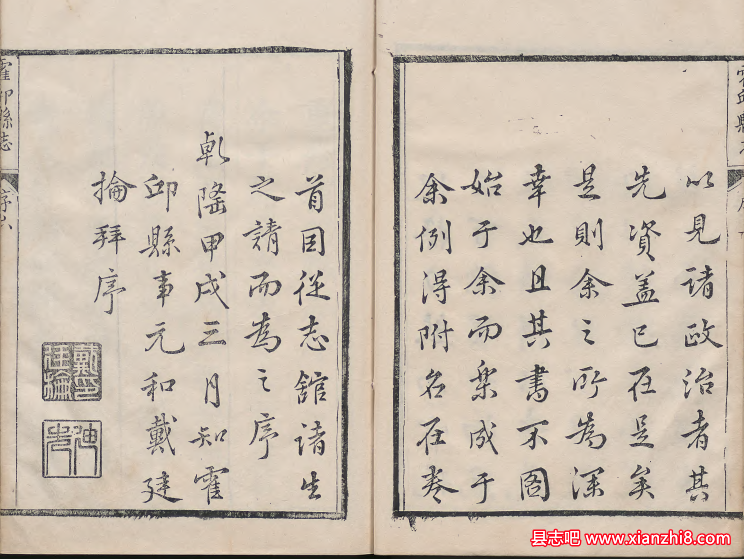 以見諸政治者其
先資盖已在是矣
是則余之所為深
幸也且其書不啚
始于余而樂成于
余例得附名在卷
首因從志館諸生
之請而為之序
乹隆甲戌三月知霍
邱縣事元和戴廷
掄拜序
霍邱縣志
縣志吧 www.xianzhi8.com